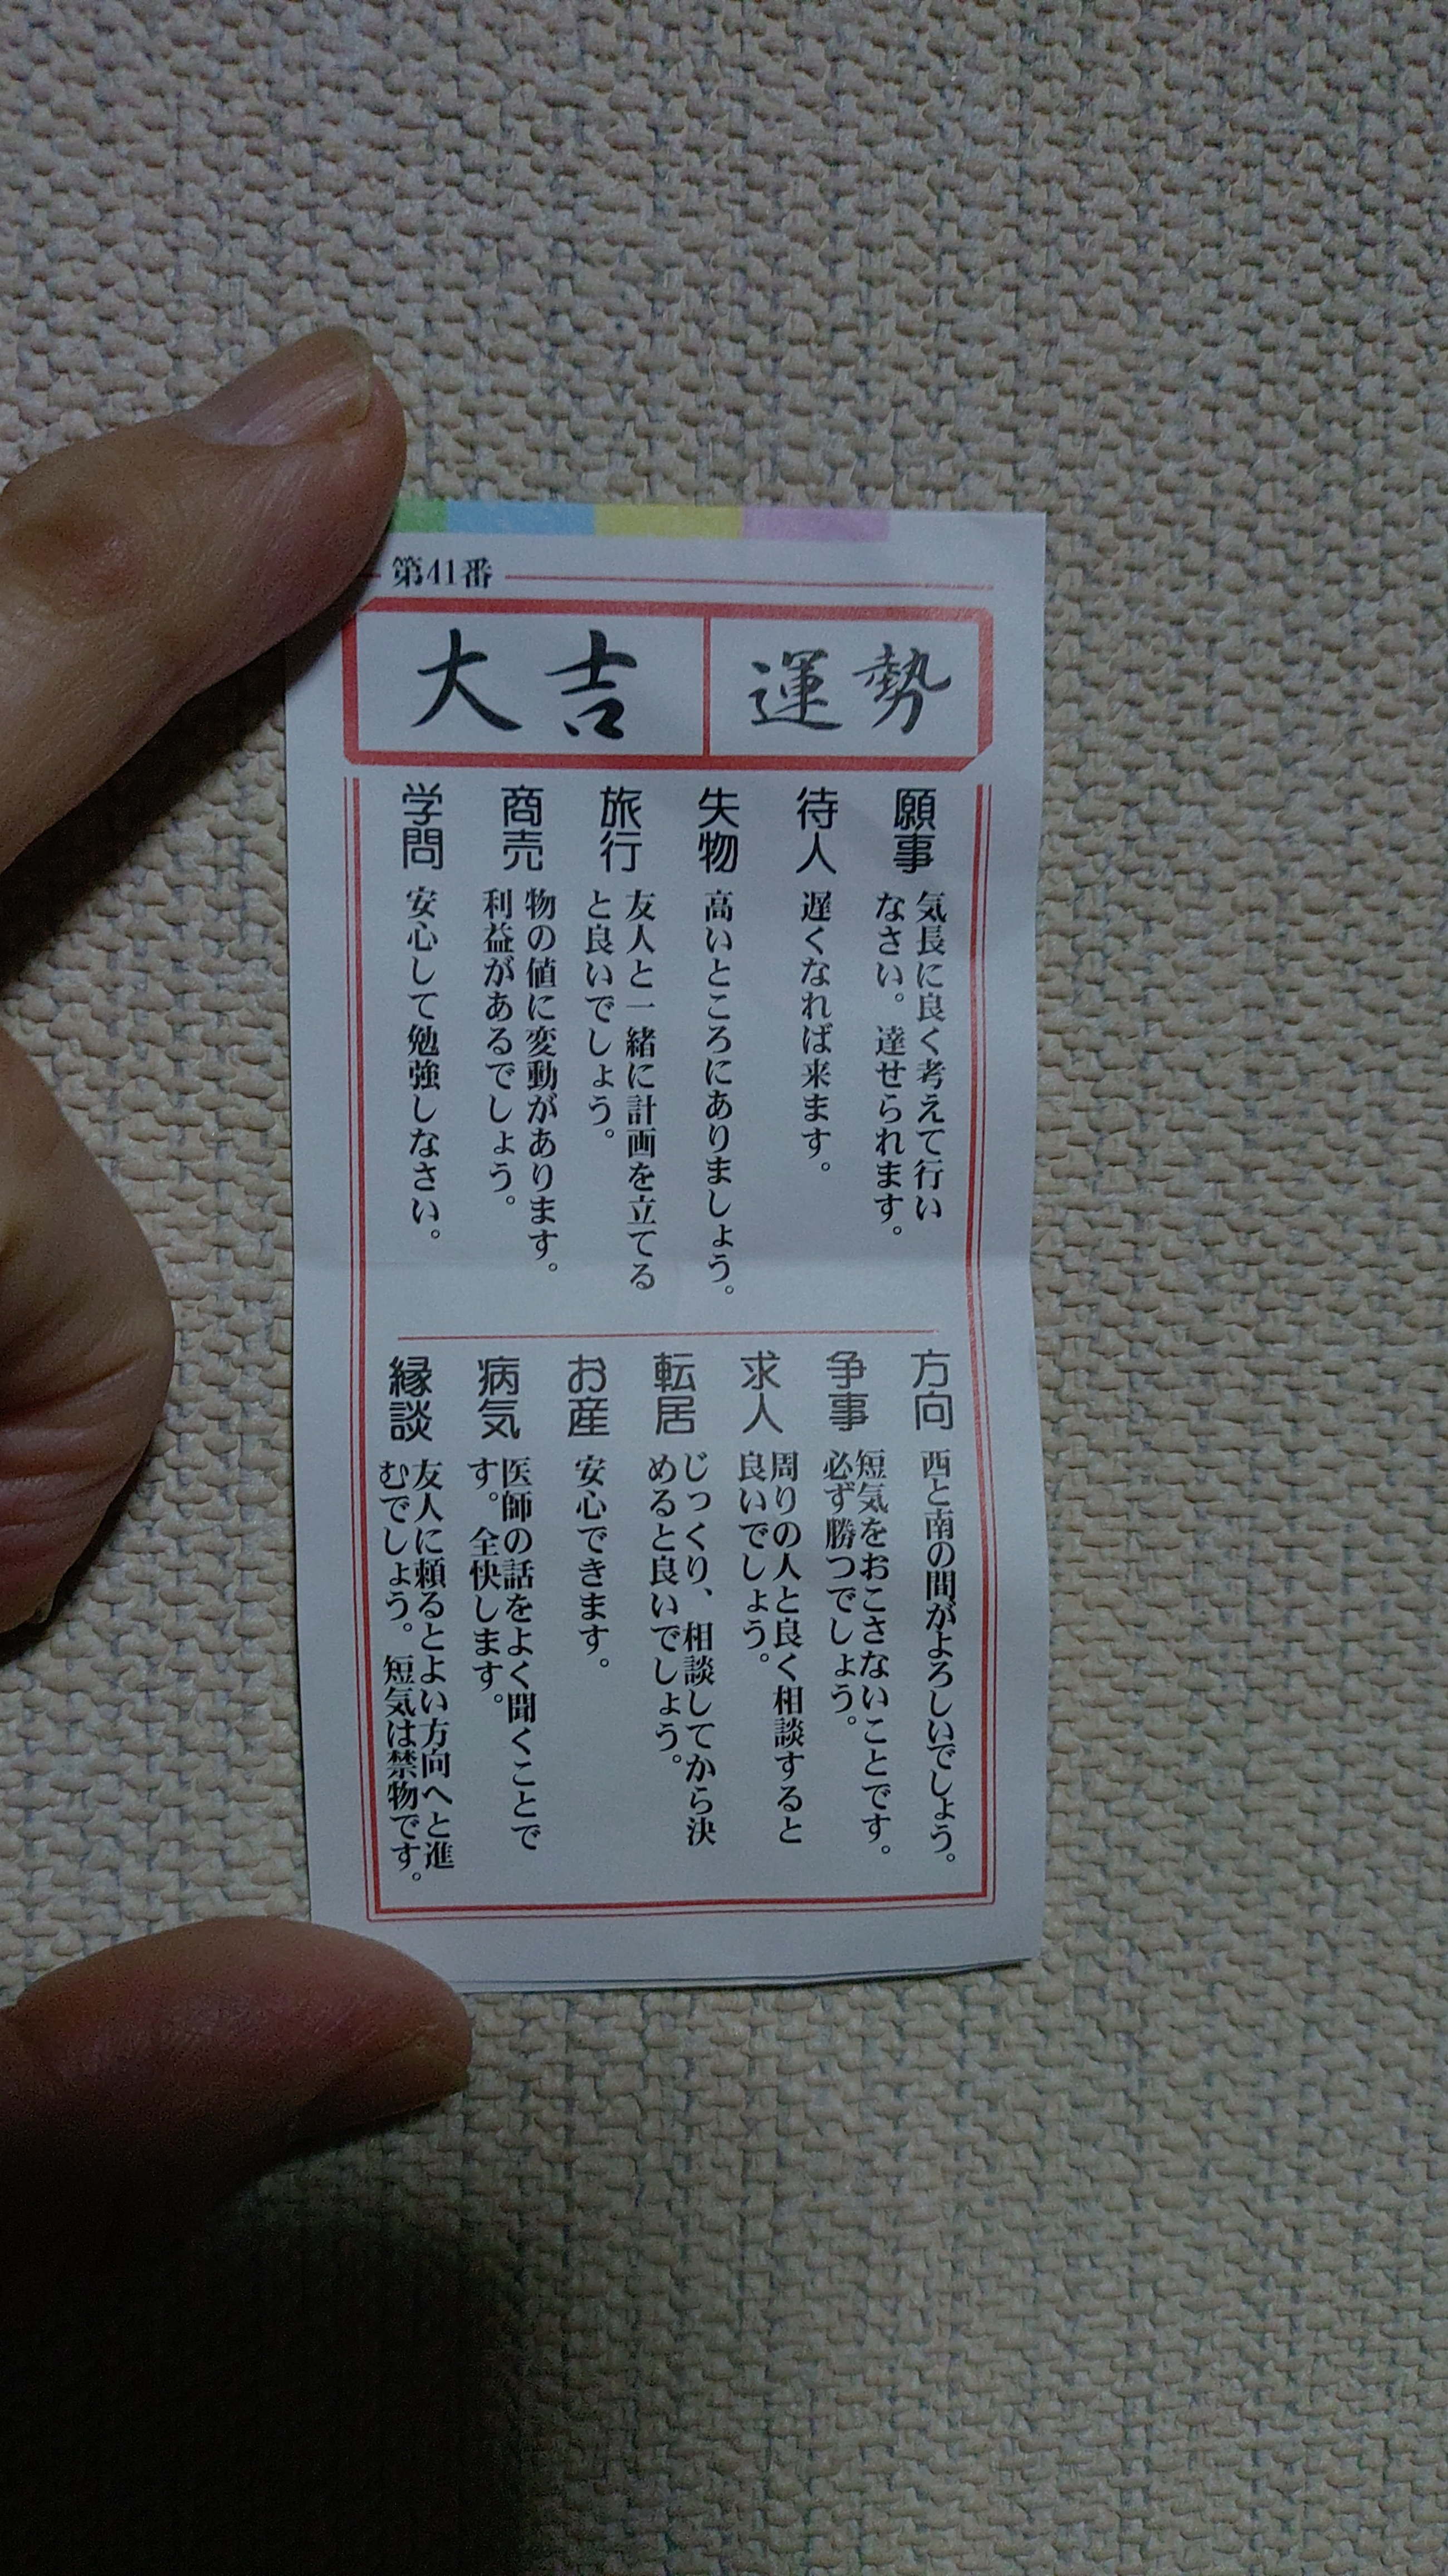 第41番
大吉 運勢
願事
気長に良く考えて行い
なさい。達せられます。
待人
遅くなれば来ます。
失物
高いところにありましょう。
旅行
友人と一緒に計画を立てる
と良いでしょう。
商売
物の値に変動があります。
利益があるでしょう。
学問
安心して勉強しなさい。
方向
西と南の間がよろしいでしょう。
争事
短気をおこさないことです。
必ず勝つでしょう。
求人
周りの人と良く相談すると
良いでしょう。
転居
じっくり、相談してから決
めると良いでしょう。
お産
安心できます。
病気
医師の話をよく聞くことで
す。全快します。
縁談
友人に頼るとよい方向へと進
むでしょう。短気は禁物です。